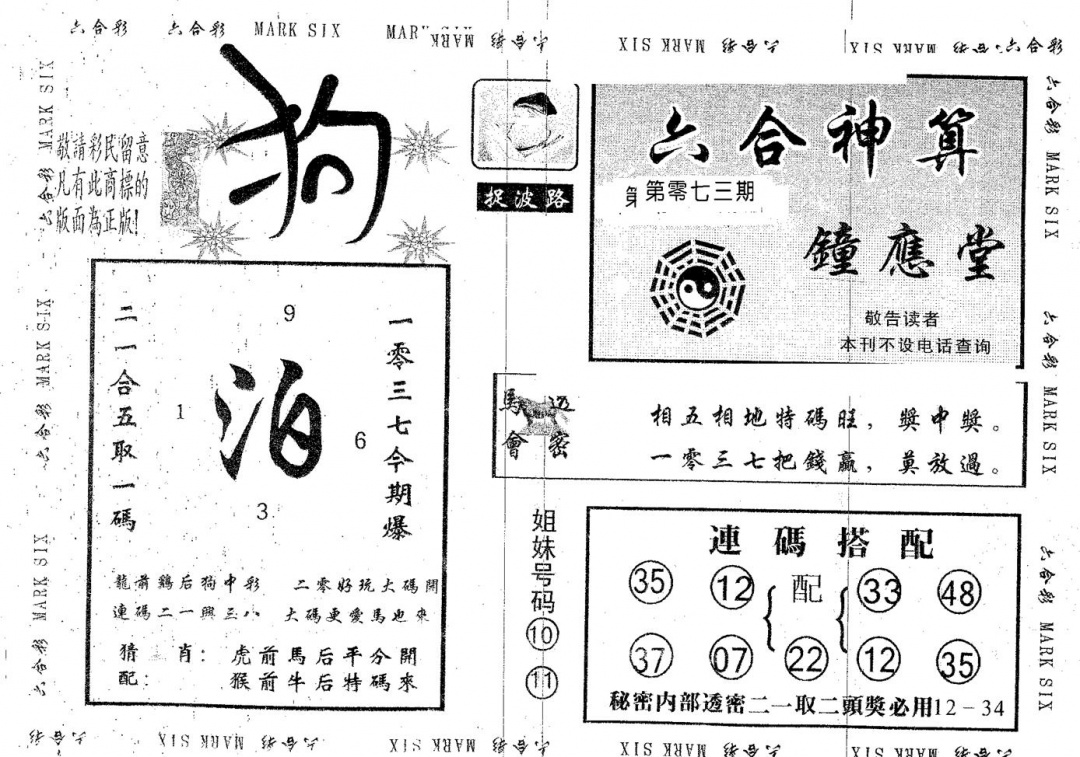 六合彩 六合彩 MARK SIX MAR MARK 六合彩
XIS MARK 六合彩 XIS MARK 六合彩 六合彩
六合彩 MARK SIX 六合彩 MARK SIX 六合彩 MARK SIX
敬請彩民留意
凡有此商標的
版面為正版!
狗
捉波路
六合神算
第零七三期
鐘應堂
敬告读者
本刊不设电话查询
二一合五取一碼
9
1
泊
6
3
一零三七今期爆
龍前鷄后狗中彩 二零好玩大碼開
連碼二一興三八 大碼更愛馬也來
猜 肖: 虎前馬后平分開
配: 猴前牛后特碼來
馬會
透密
相五相地特碼旺,獎中獎。
一零三七把錢贏,莫放過。
姐妹号码
10
11
連碼搭配
35 12 配 33 48
37 07 22 12 35
秘密内部透密二一取二頭獎必用12-34
六合彩 MARK SIX 六合彩 MARK SIX 六合彩 MARK SIX
六合彩 XIS MARK 六合彩 XIS MARK 六合彩
XIS MARK 六合彩 XIS MARK 六合彩